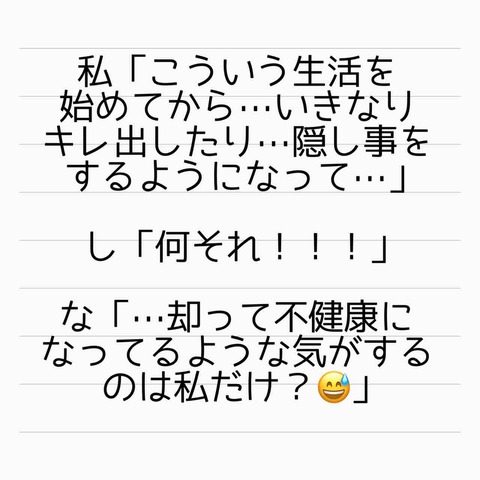 私「こういう生活を
始めてから…いきなり
キレ出したり…隠し事を
するようになって…」
し「何それ！！！」
な「…却って不健康に
なってるような気がする
のは私だけ？😅」